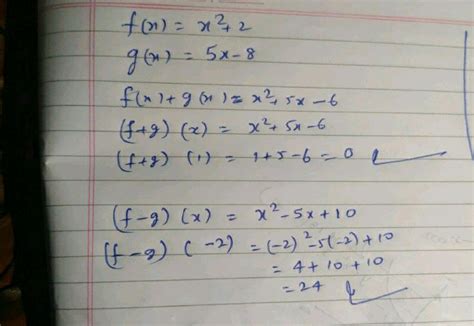 f(x) = x²+2
g(x) = 5x-8
f(x)+g(x) = x²+5x-6
(f+g) (x) = x²+5x-6
(f+g) (1) = 1+5-6=0
(f-g) (x) = x²-5x+10
(f-g) (-2) = (-2)²-5(-2)+10
= 4+10+10
= 24